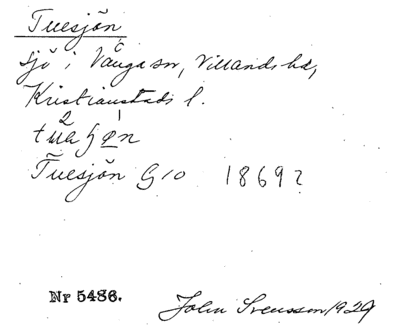 Tuesjön
sjö i Vånga sn, Villands hd,
Kristianstads l.
Tuesjön G 10 1869?
Nr 5486.
John Svensson 1929